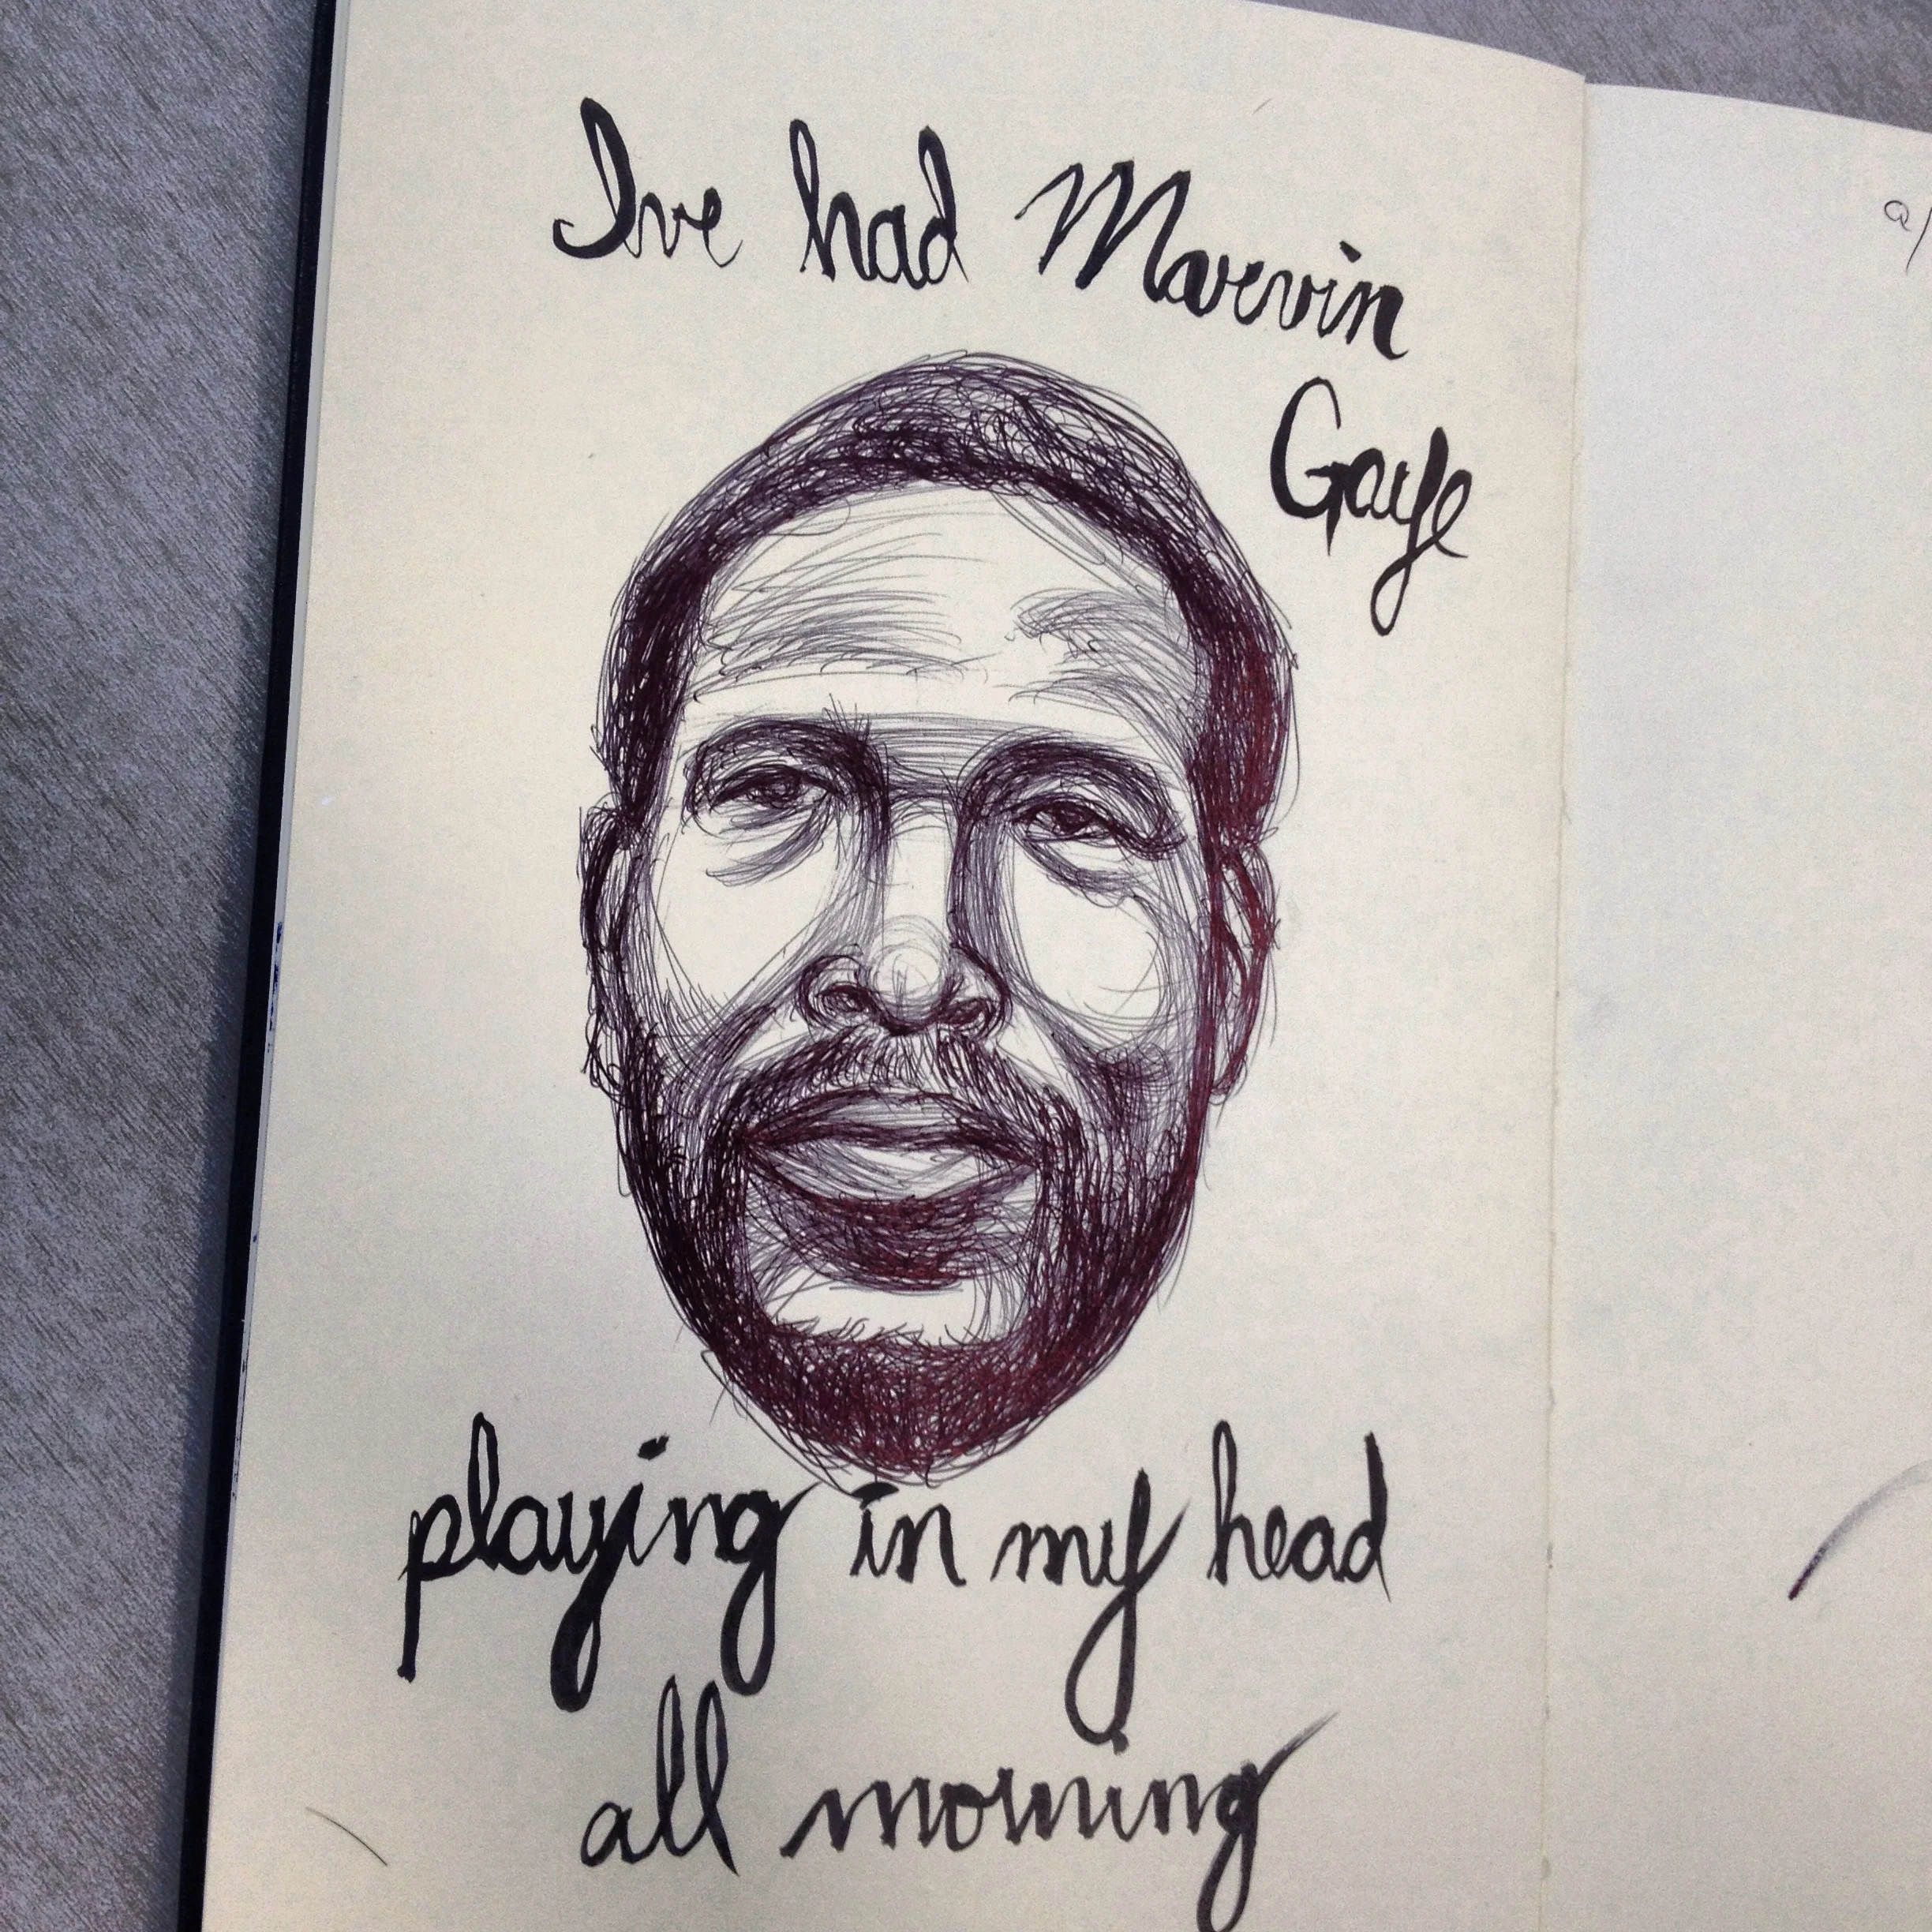 Ive had Marvin
Gaye
playing in my head
all morning